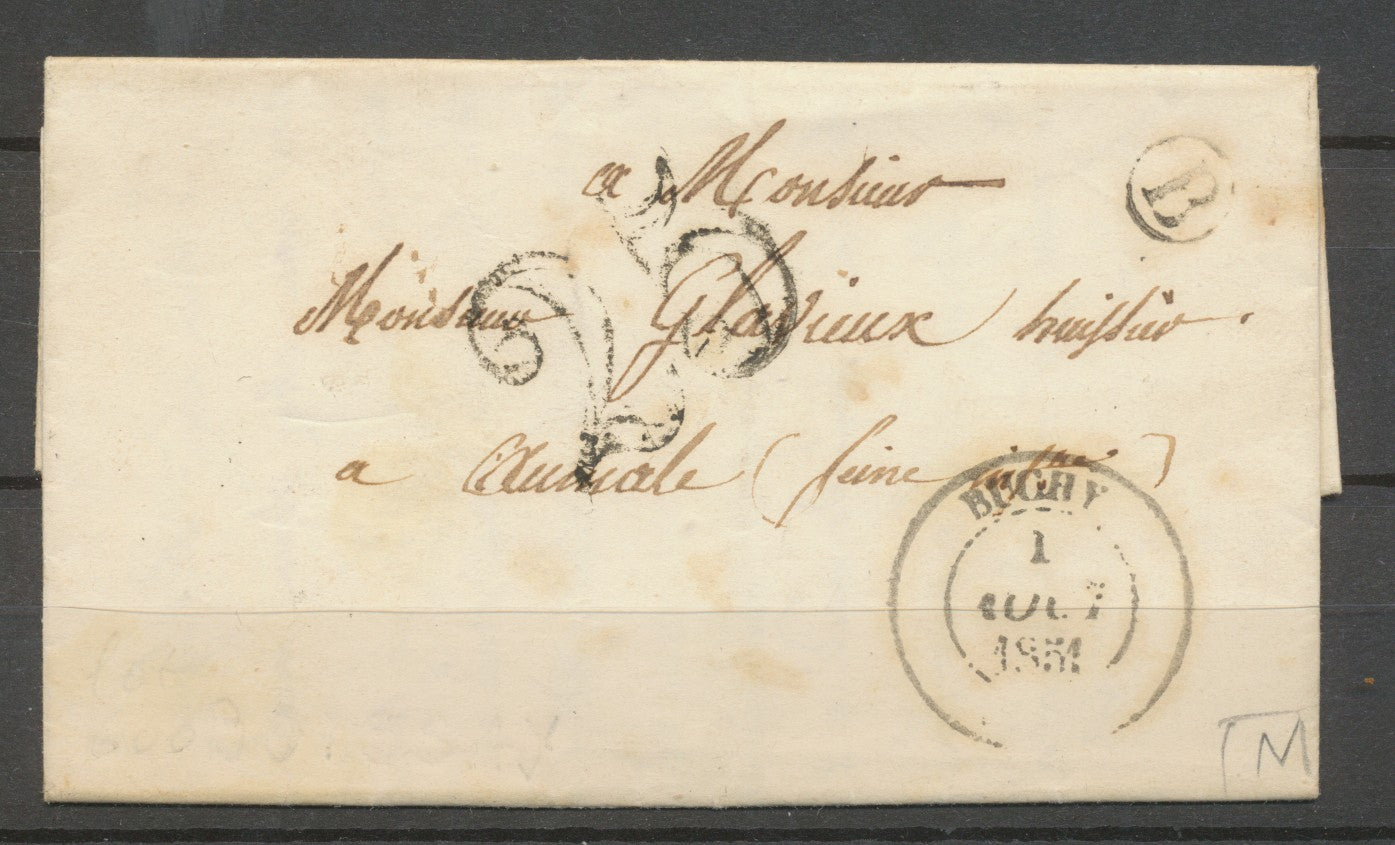 a Monsieur
B
25
Monsieur Glavieux huissier.
a Aumale (Seine infre)
BUCHY
1
AOUT
1851
M